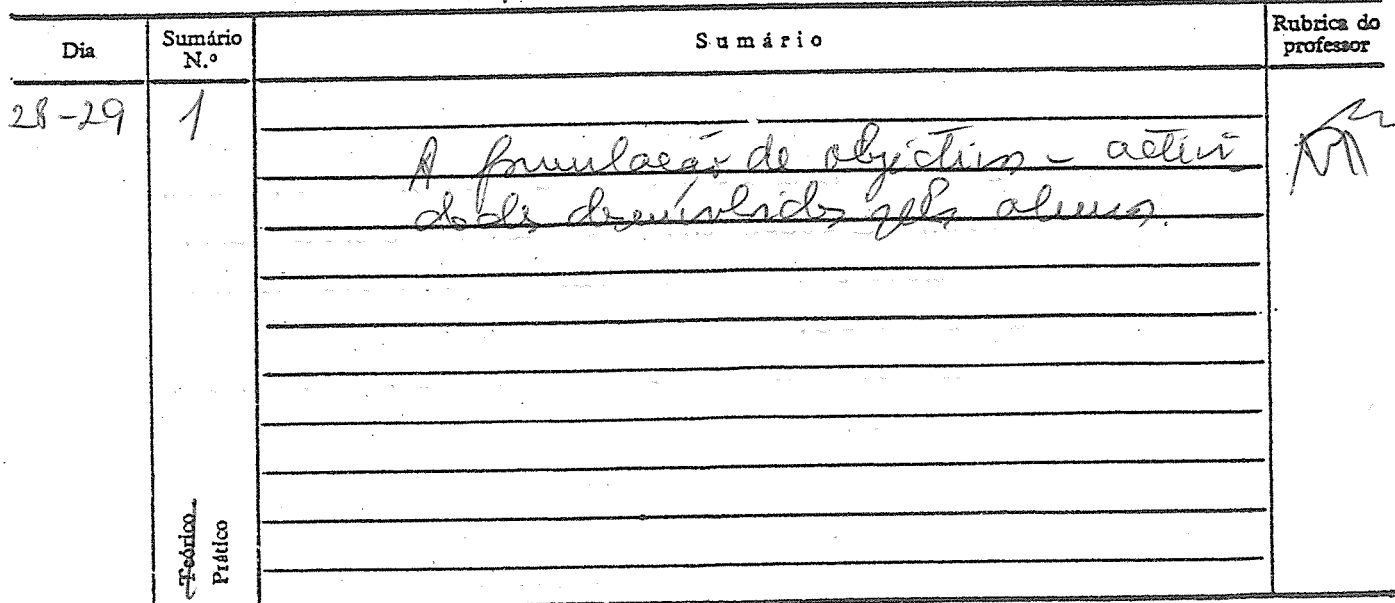 Dia
Sumário
N.º
Sumário
Rubrica do
professor
28-29
1
A formulação de objectivos - activi
dades desenvolvidas pelos alunos.
Teórico
Prático